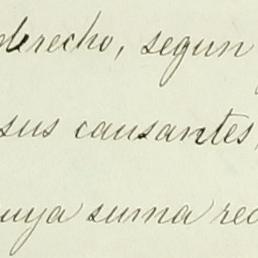 derecho, segun
sus causantes,
uya suma rec